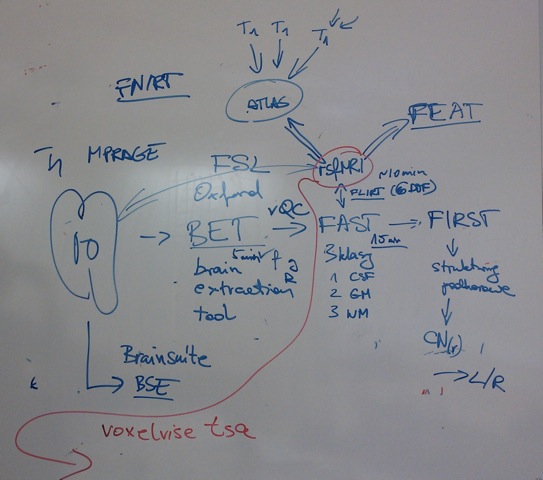 T1 T1 T1
FNIRT
ATLAS
FEAT
T1 MPRAGE
FSL
Oxford
~10min
FLIRT (6 DOF)
BET
VQC
FAST
FIRST
5min
f g
R
15min
brain
extraction
tool
3 klasy
1 CSF
2 GM
3 WM
struktury
podkorowe
CN(r)
L/R
Brainsuite
BSE
voxelvise tsa